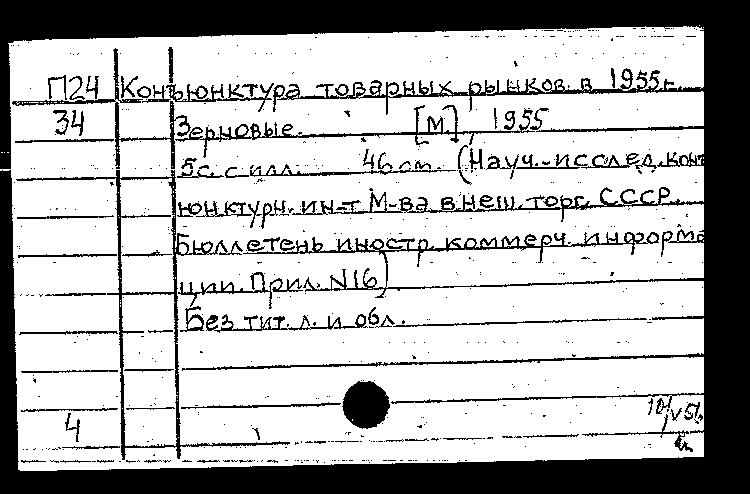 П24 Конъюнктура товарных рынков в 1955г.
34 Зерновые. [М.], 1955
5с. с илл. 46 см. (Науч.-исслед. конъ
юнктурн. ин-т М-ва внеш. торг. СССР.
Бюллетень иностр. коммерч. информа
ции. Прил. N16)
Без тит. л. и обл.
4